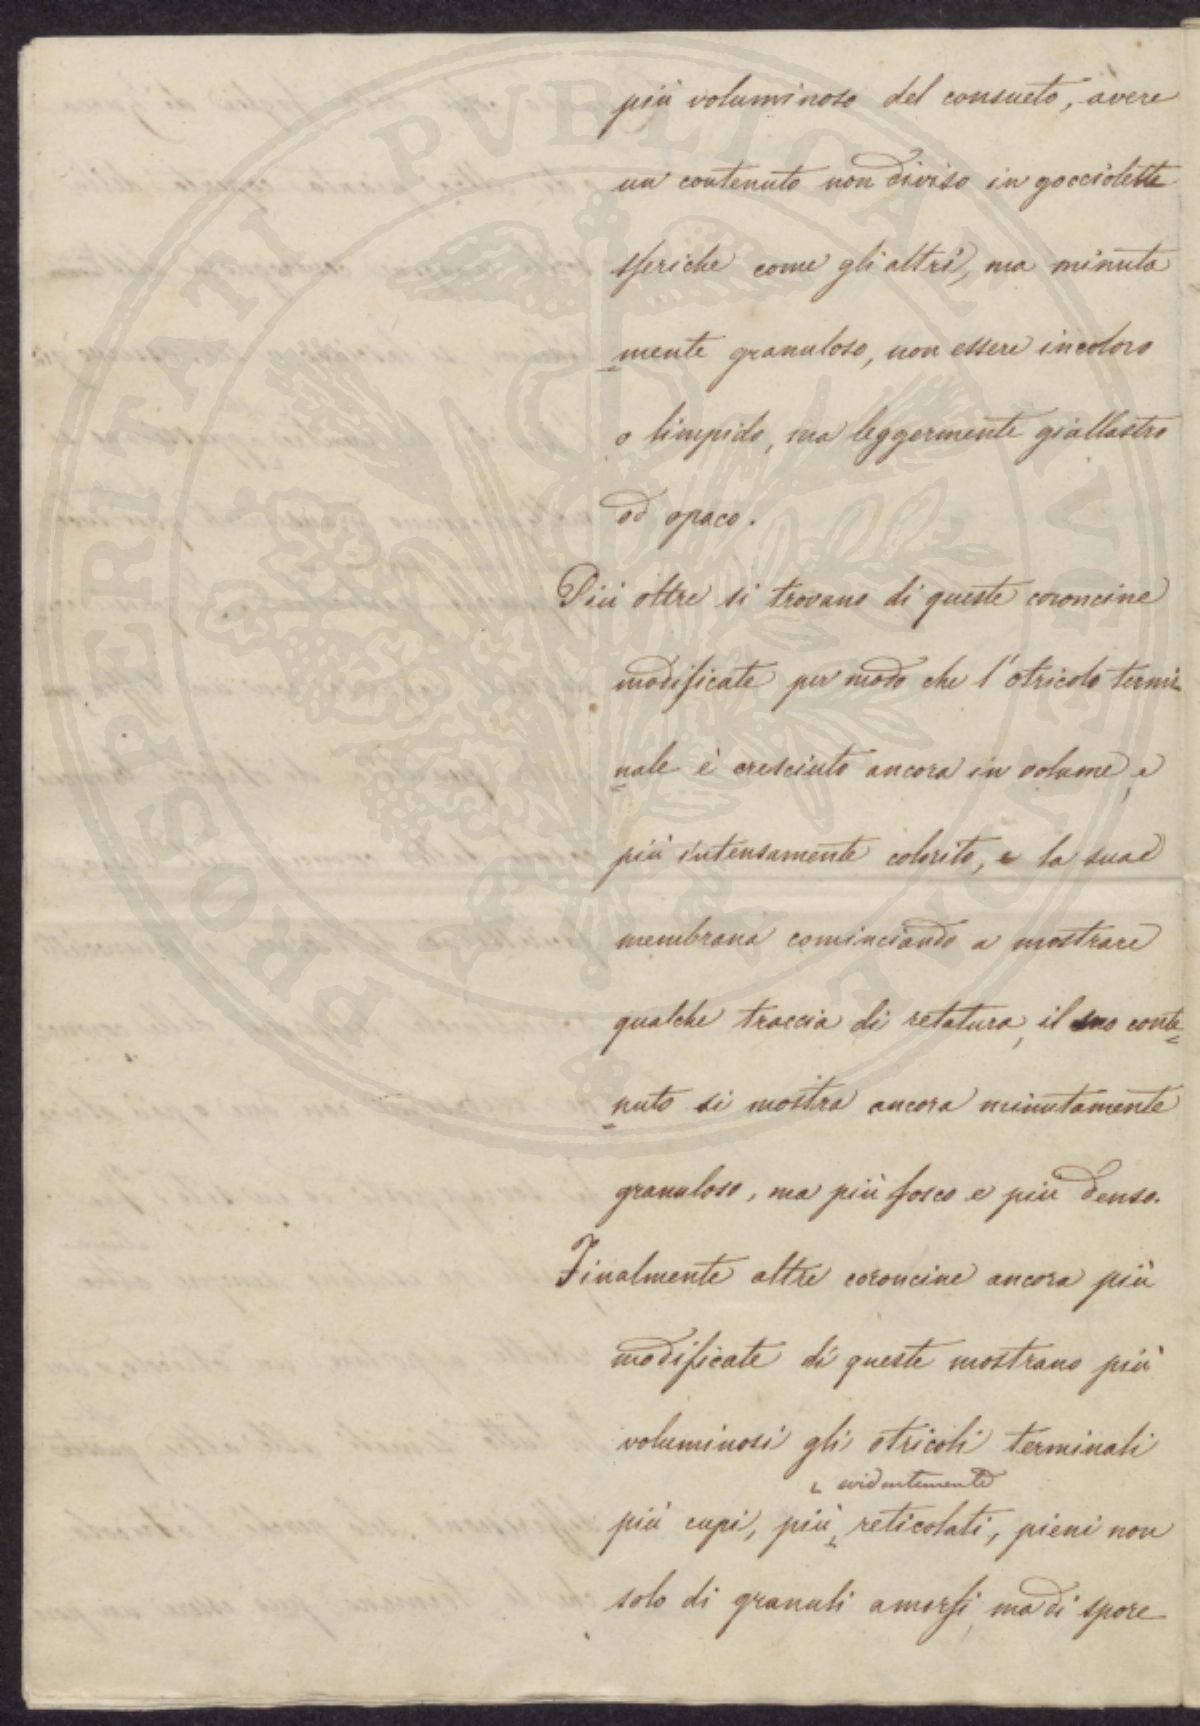 più voluminoso del consueto, avere
un contenuto non diviso in gocciolette
sferiche come gli altri, ma minuta
mente granuloso, non essere incoloro
o limpido, ma leggermente giallastro
od opaco.
Più oltre si trovano di queste coroncine
modificate per modo che l'otricolo termi
nale è cresciuto ancora in volume, e
più intensamente colorito, e la sua
membrana cominciando a mostrare
qualche traccia di retatura, il suo conte
nuto si mostra ancora minutamente
granuloso, ma più fosco e più denso.
Finalmente altre coroncine ancora più
modificate di queste mostrano più
voluminosi gli otricoli terminali
evidentemente
più cupi, più reticolati, pieni non
solo di granuli amorfi, ma di spore
PROSPERITATI PUBLICAE